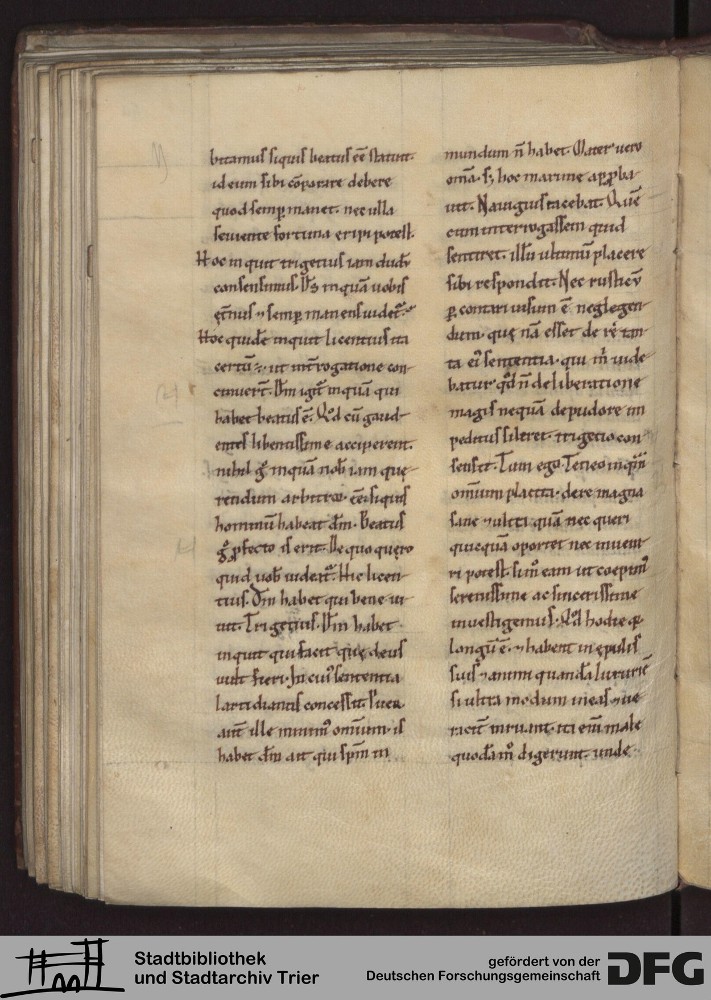 bitamus siquis beatus eē statuit.
id eum sibi cōparare debere
quod semꝑ manet. nec ulla
seuiente fortuna eripi potest.
Hoc inquit trigetius iam dudū
consensimus. Dꝰs inquā uobis
ęt̄nus ⁊ semꝑ manens uidet̄.
Hoc quidē inquit licentius ita
certū. ut int̄rogatione non
Dm̄ igit̄ inquā qui
habet beatus ē. Qđ cū gaud
entes libentissime acciperent.
nihil g̊ inquā nob̄ iam quę
rendum arbitror. eē. siquis
hominū habeat dm̄. Beatus
g̊ ꝓfecto is erit. De quo quęro
quid uob̄ uideat̄. Hic licen
tius. Dm̄ habet qui bene ui
uit. Trigetius. Dm̄ habet
inquit qui facit quę deus
uult fieri. In cuiꝰ sententia
lartidianus concessit. Puer
aut̄ ille minimꝰ omnium. is
habet dm̄ ait qui spm̄ in
mundum n̄ habet. Mater uero
om̄a. sꝫ hoc maxime apꝓba
uit. Nauigius tacebat. Quē
cum interrogassem quid
sentiret. illū ultimū placere
sibi respondit. Nec rusticū
ꝑcontari uisum ē neglegen
dum. quę nā esset de re tan
ta eiꝰ sententia. qui m̄ uide
batur qđ n̄ deliberatione
magis nequā de pudore im
peditus sileret. trigetio con
sensit. Tum ego. Teneo inquā
omnium placita. de re magna
sane ⁊ ultra quā nec queri
quicquā oportet nec inueni
ri potest. si m̄ eam ut coepimꝰ
serenissime ac sincerissime
inuestigemus. Qđ hodie qꝫ
longū ē. ⁊ habent in epulis
suis ⁊ animi quandā luxuriē
si ultra modum in eas
inruant. ita enī male
quodāmꝰ digerunt. unde
Stadtbibliothek
und Stadtarchiv Trier
gefördert von der
Deutschen Forschungsgemeinschaft
DFG